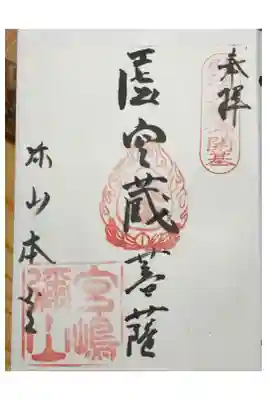 奉拝
開基
虚空蔵菩薩
弥山本堂
宮嶋
彌山